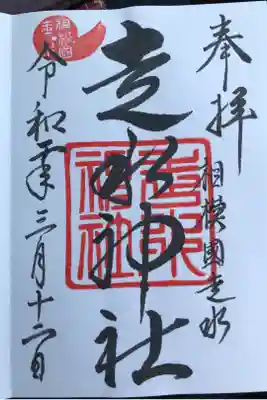 奉拝
相模國走水
走水神社
走水神社
令和 年三月十 日